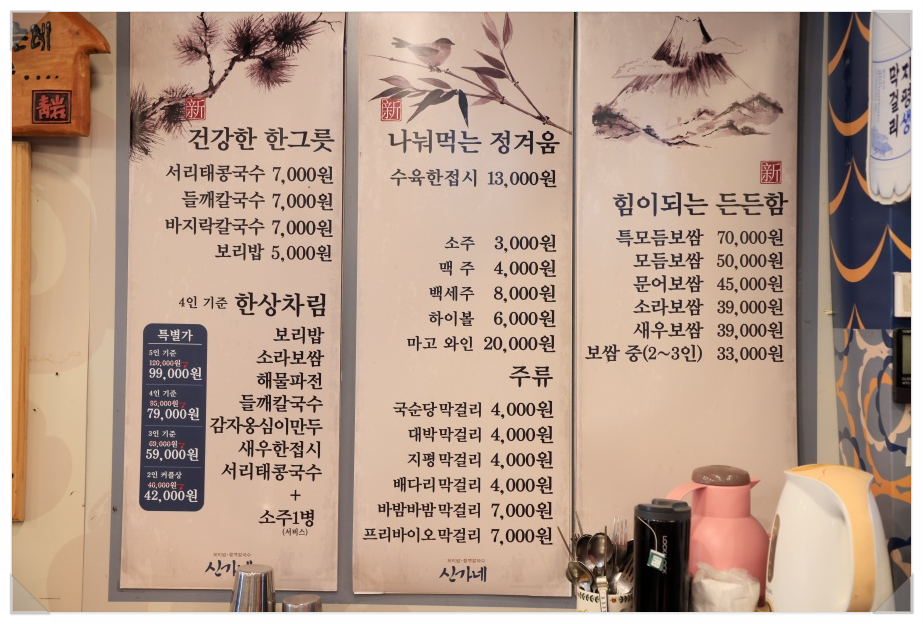 순대
靑岩
新
건강한 한그릇
서리태콩국수 7,000원
들깨칼국수 7,000원
바지락칼국수 7,000원
보리밥 5,000원
4인 기준 한상차림
보리밥
소라보쌈
해물파전
들깨칼국수
감자옹심이만두
새우한접시
서리태콩국수
+
소주1병
(서비스)
특별가
5인 기준
120,000원
99,000원
4인 기준
95,000원
79,000원
3인 기준
69,000원
59,000원
2인 커플상
46,000원
42,000원
신가네
新
나눠먹는 정겨움
수육한접시 13,000원
소주 3,000원
맥 주 4,000원
백세주 8,000원
하이볼 6,000원
마고 와인 20,000원
주류
국순당막걸리 4,000원
대박막걸리 4,000원
지평막걸리 4,000원
배다리막걸리 4,000원
바밤바밤막걸리 7,000원
프리바이오막걸리 7,000원
신가네
新
힘이되는 든든함
특모듬보쌈 70,000원
모듬보쌈 50,000원
문어보쌈 45,000원
소라보쌈 39,000원
새우보쌈 39,000원
보쌈 중(2~3인) 33,000원
지평생
막걸리